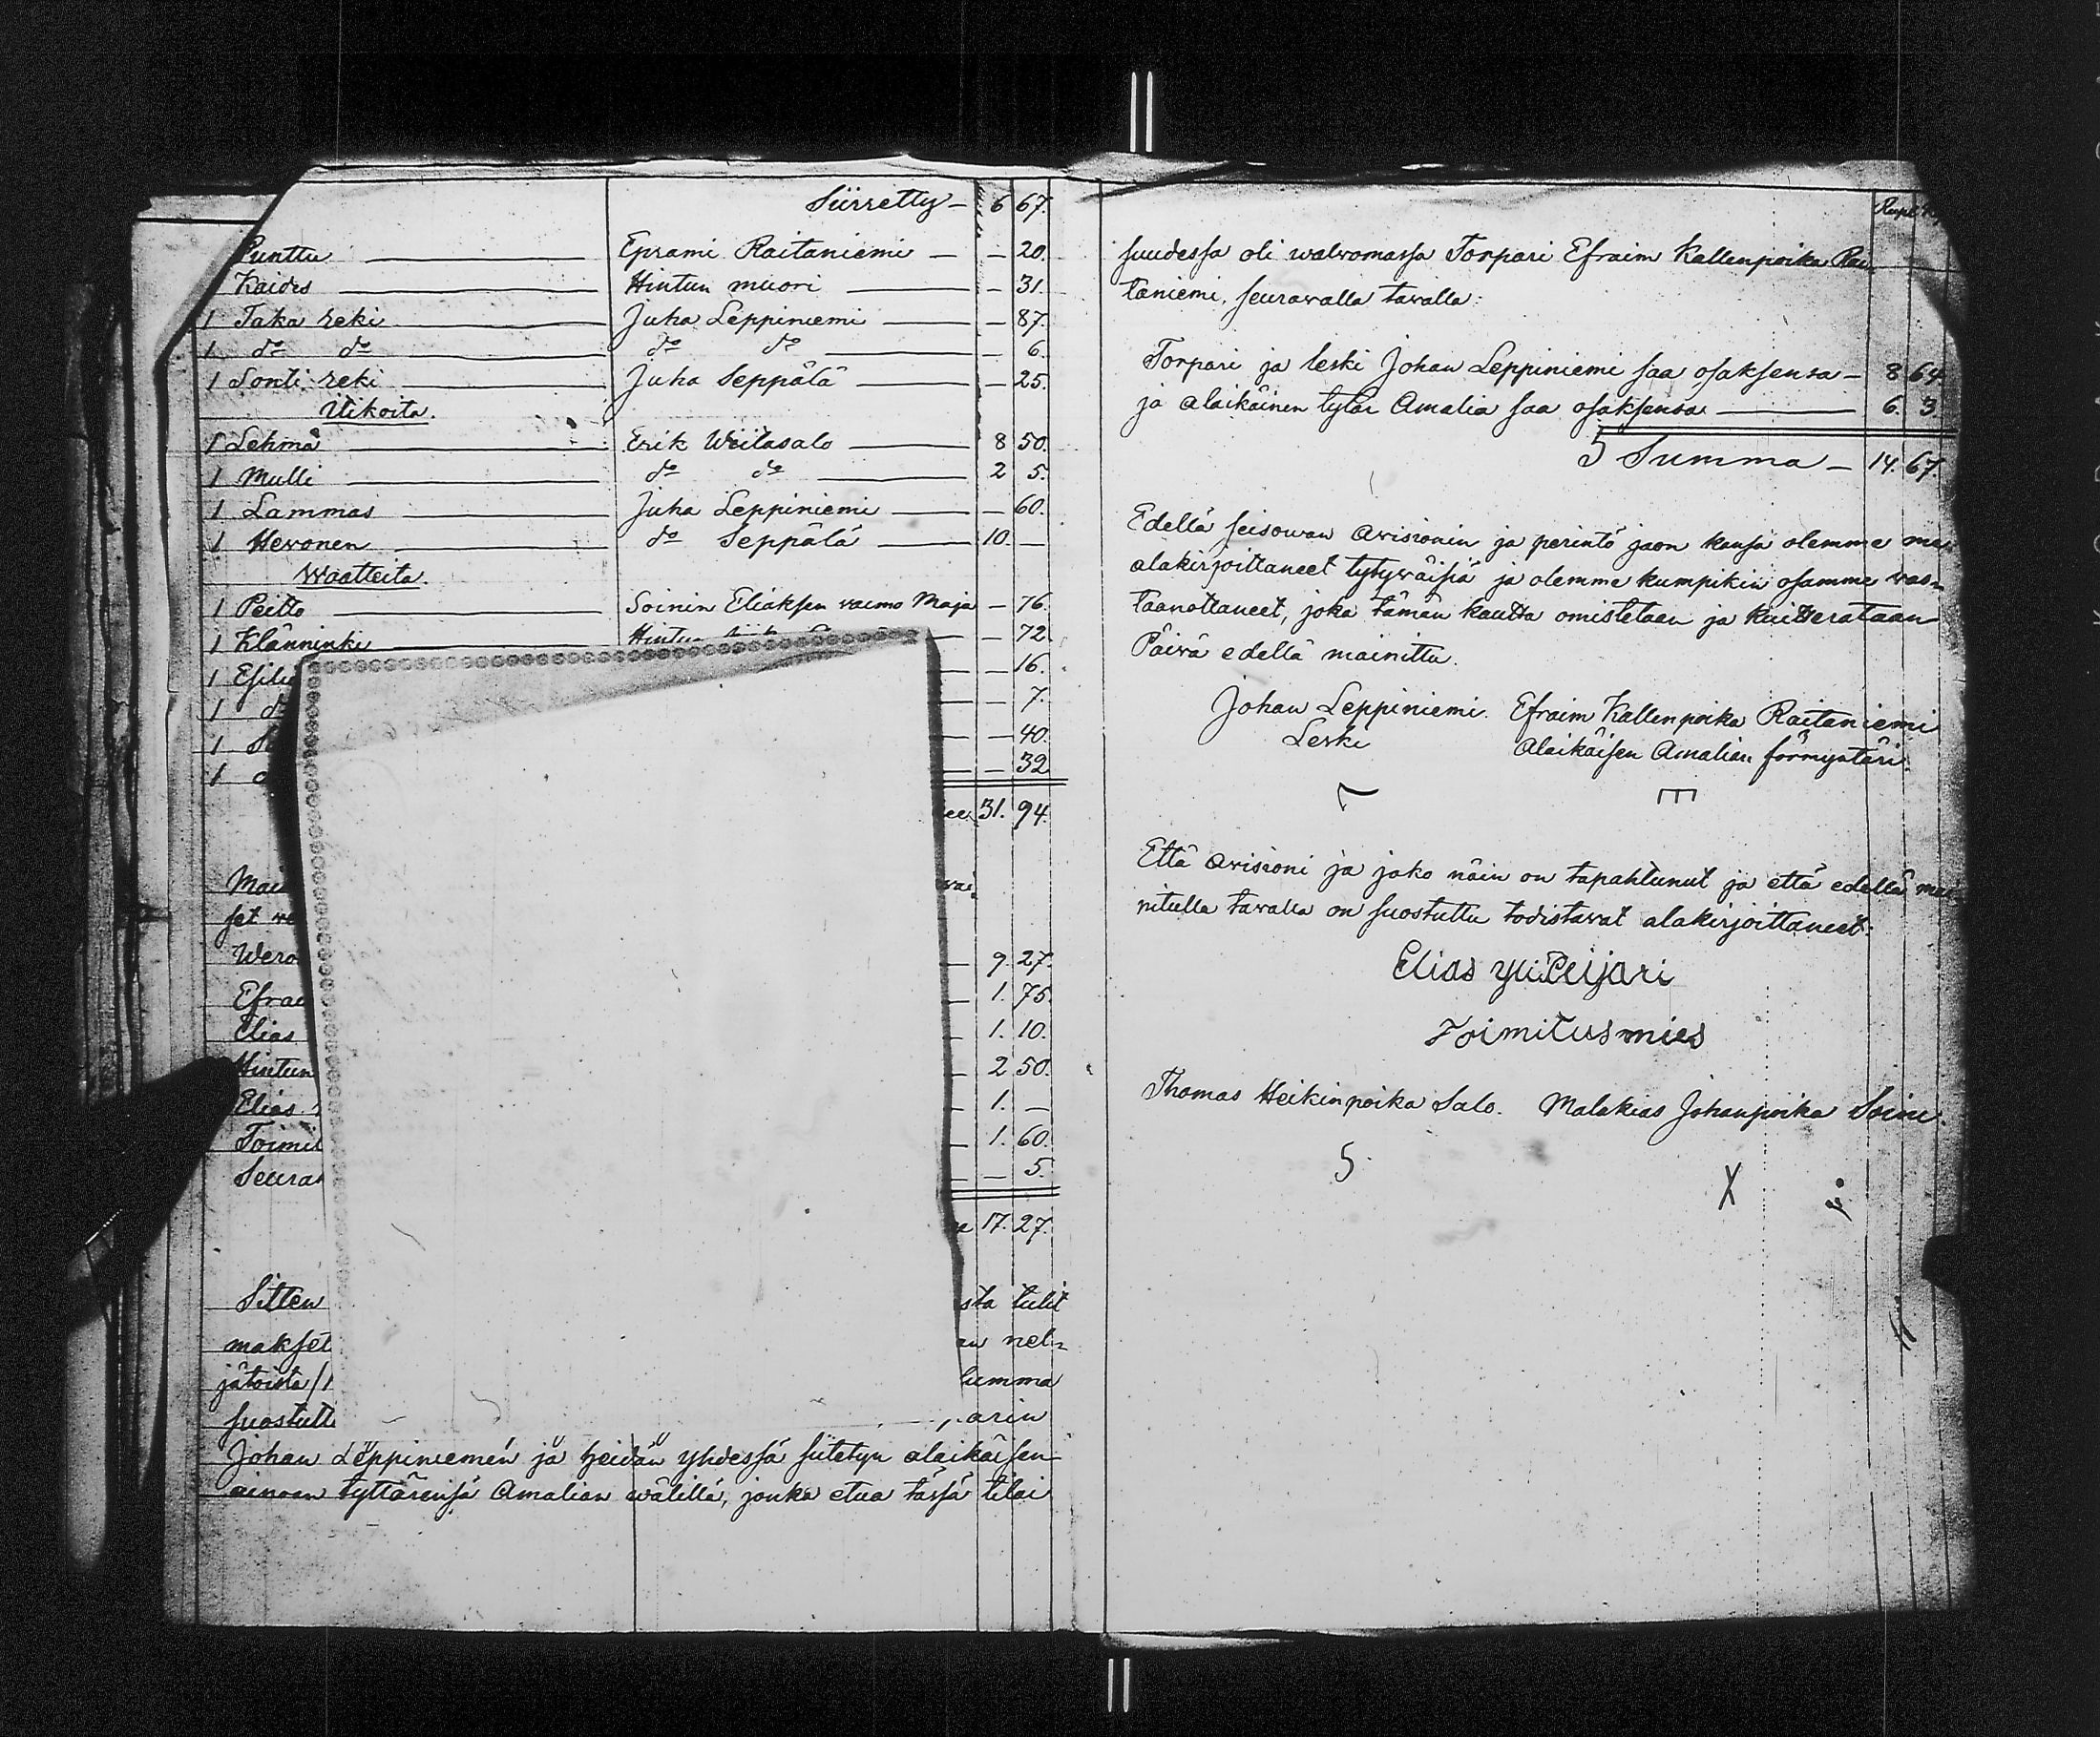 Siirretty — 6 67.
Punttu — Eprami Raitaniemi — — 20.
Kaides — Hintun muori — — 31.
1 Taka reki — Juha Leppiniemi — — 87.
1 do do — do do — — 6.
1 Sonti reki — Juha Seppälä — — 25.
Elikoita.
1 Lehmä — Erik Wiitasalo — 8 50.
1 Mulli — do do — 2 5.
1 Lammas — Juha Leppiniemi — — 60.
1 Hevonen — do Seppälä — 10. —
Waatteita.
1 Peitto — Soinin Eliaksen vaimo Maja — 76.
1 Klänninki — Hintun — — 72.
1 Esilii — — 16.
1 do — — 7.
1 — — 40.
1 — — 32
31. 94.
Mai
set
Wero — 9. 27.
Efrai — 1. 75.
Elias — 1. 10.
Hintun — 2 50.
Elias — 1. —
Toimit — 1. 60.
Seura — — 5.
17. 27.
Sitten sta tulit
makset an nel=
jätoista /1 summa
suostutt parin
Johan Leppiniemen ja heidän yhdessä siitetyn alaikäisen
ainoan tyttärensä Amalian wälillä, jonka etua tässä tilai
Rupl. K.
suudessa oli walwomassa Torpari Efraim Kallenpoika Rai=
taniemi, seurawalla tawalla:
Torpari ja leski Johan Leppiniemi saa osaksensa — 8 64
ja alaikäinen tytär Amalia saa osaksensa — 6. 3
Summa — 14. 67.
Edellä seisowan awisionin ja perintö jaon kansa olemme me
alakirjoittaneet tytywäisiä ja olemme kumpikin osamme was=
taanottaneet, joka tämän kautta omistetaan ja kuitterataan
Päivä edellä mainittu.
Johan Leppiniemi. Efraim Kallenpoika Raitaniemi
Leski Alaikäisen Amalian förmyntäri.
Että awisioni ja jako näin on tapahtunut ja että edellä mai
nitulla tawalla on suostuttu todistavat alakirjoittaneet:
Elias yliPeijari
Toimitusmies
Thomas Heikinpoika Salo. Malakias Johanpoika Soini.